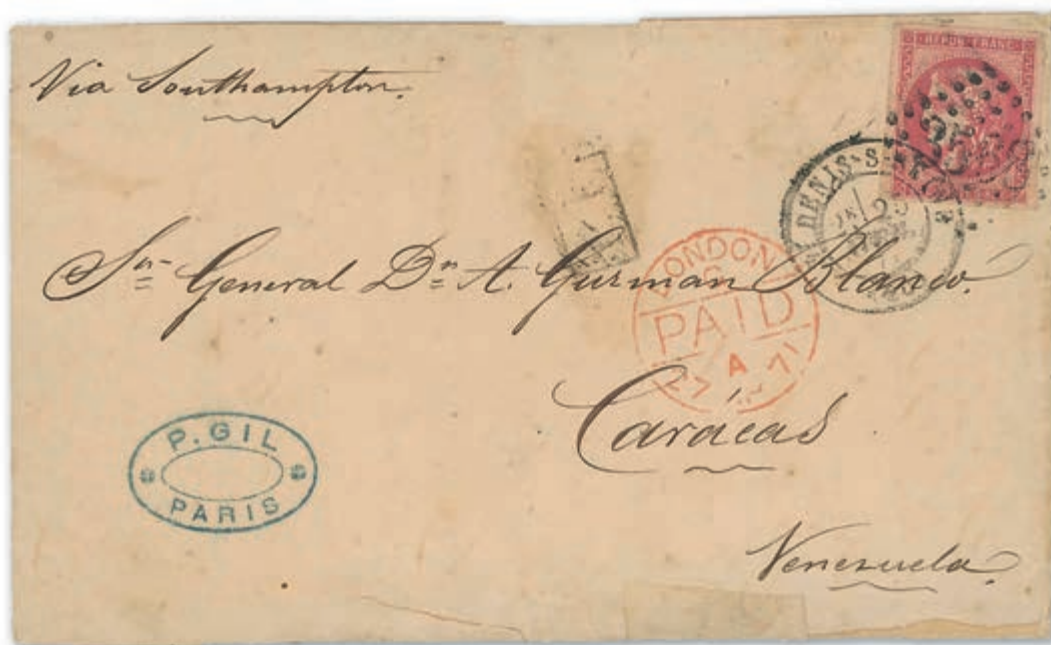 Via Southampton.
REPUB FRANC
DENIS-S-
25
Sor General Dn A. Guzman Blanco.
LONDON
PAID
27 A 71
Carácas
P. GIL
PARIS
Venezuela